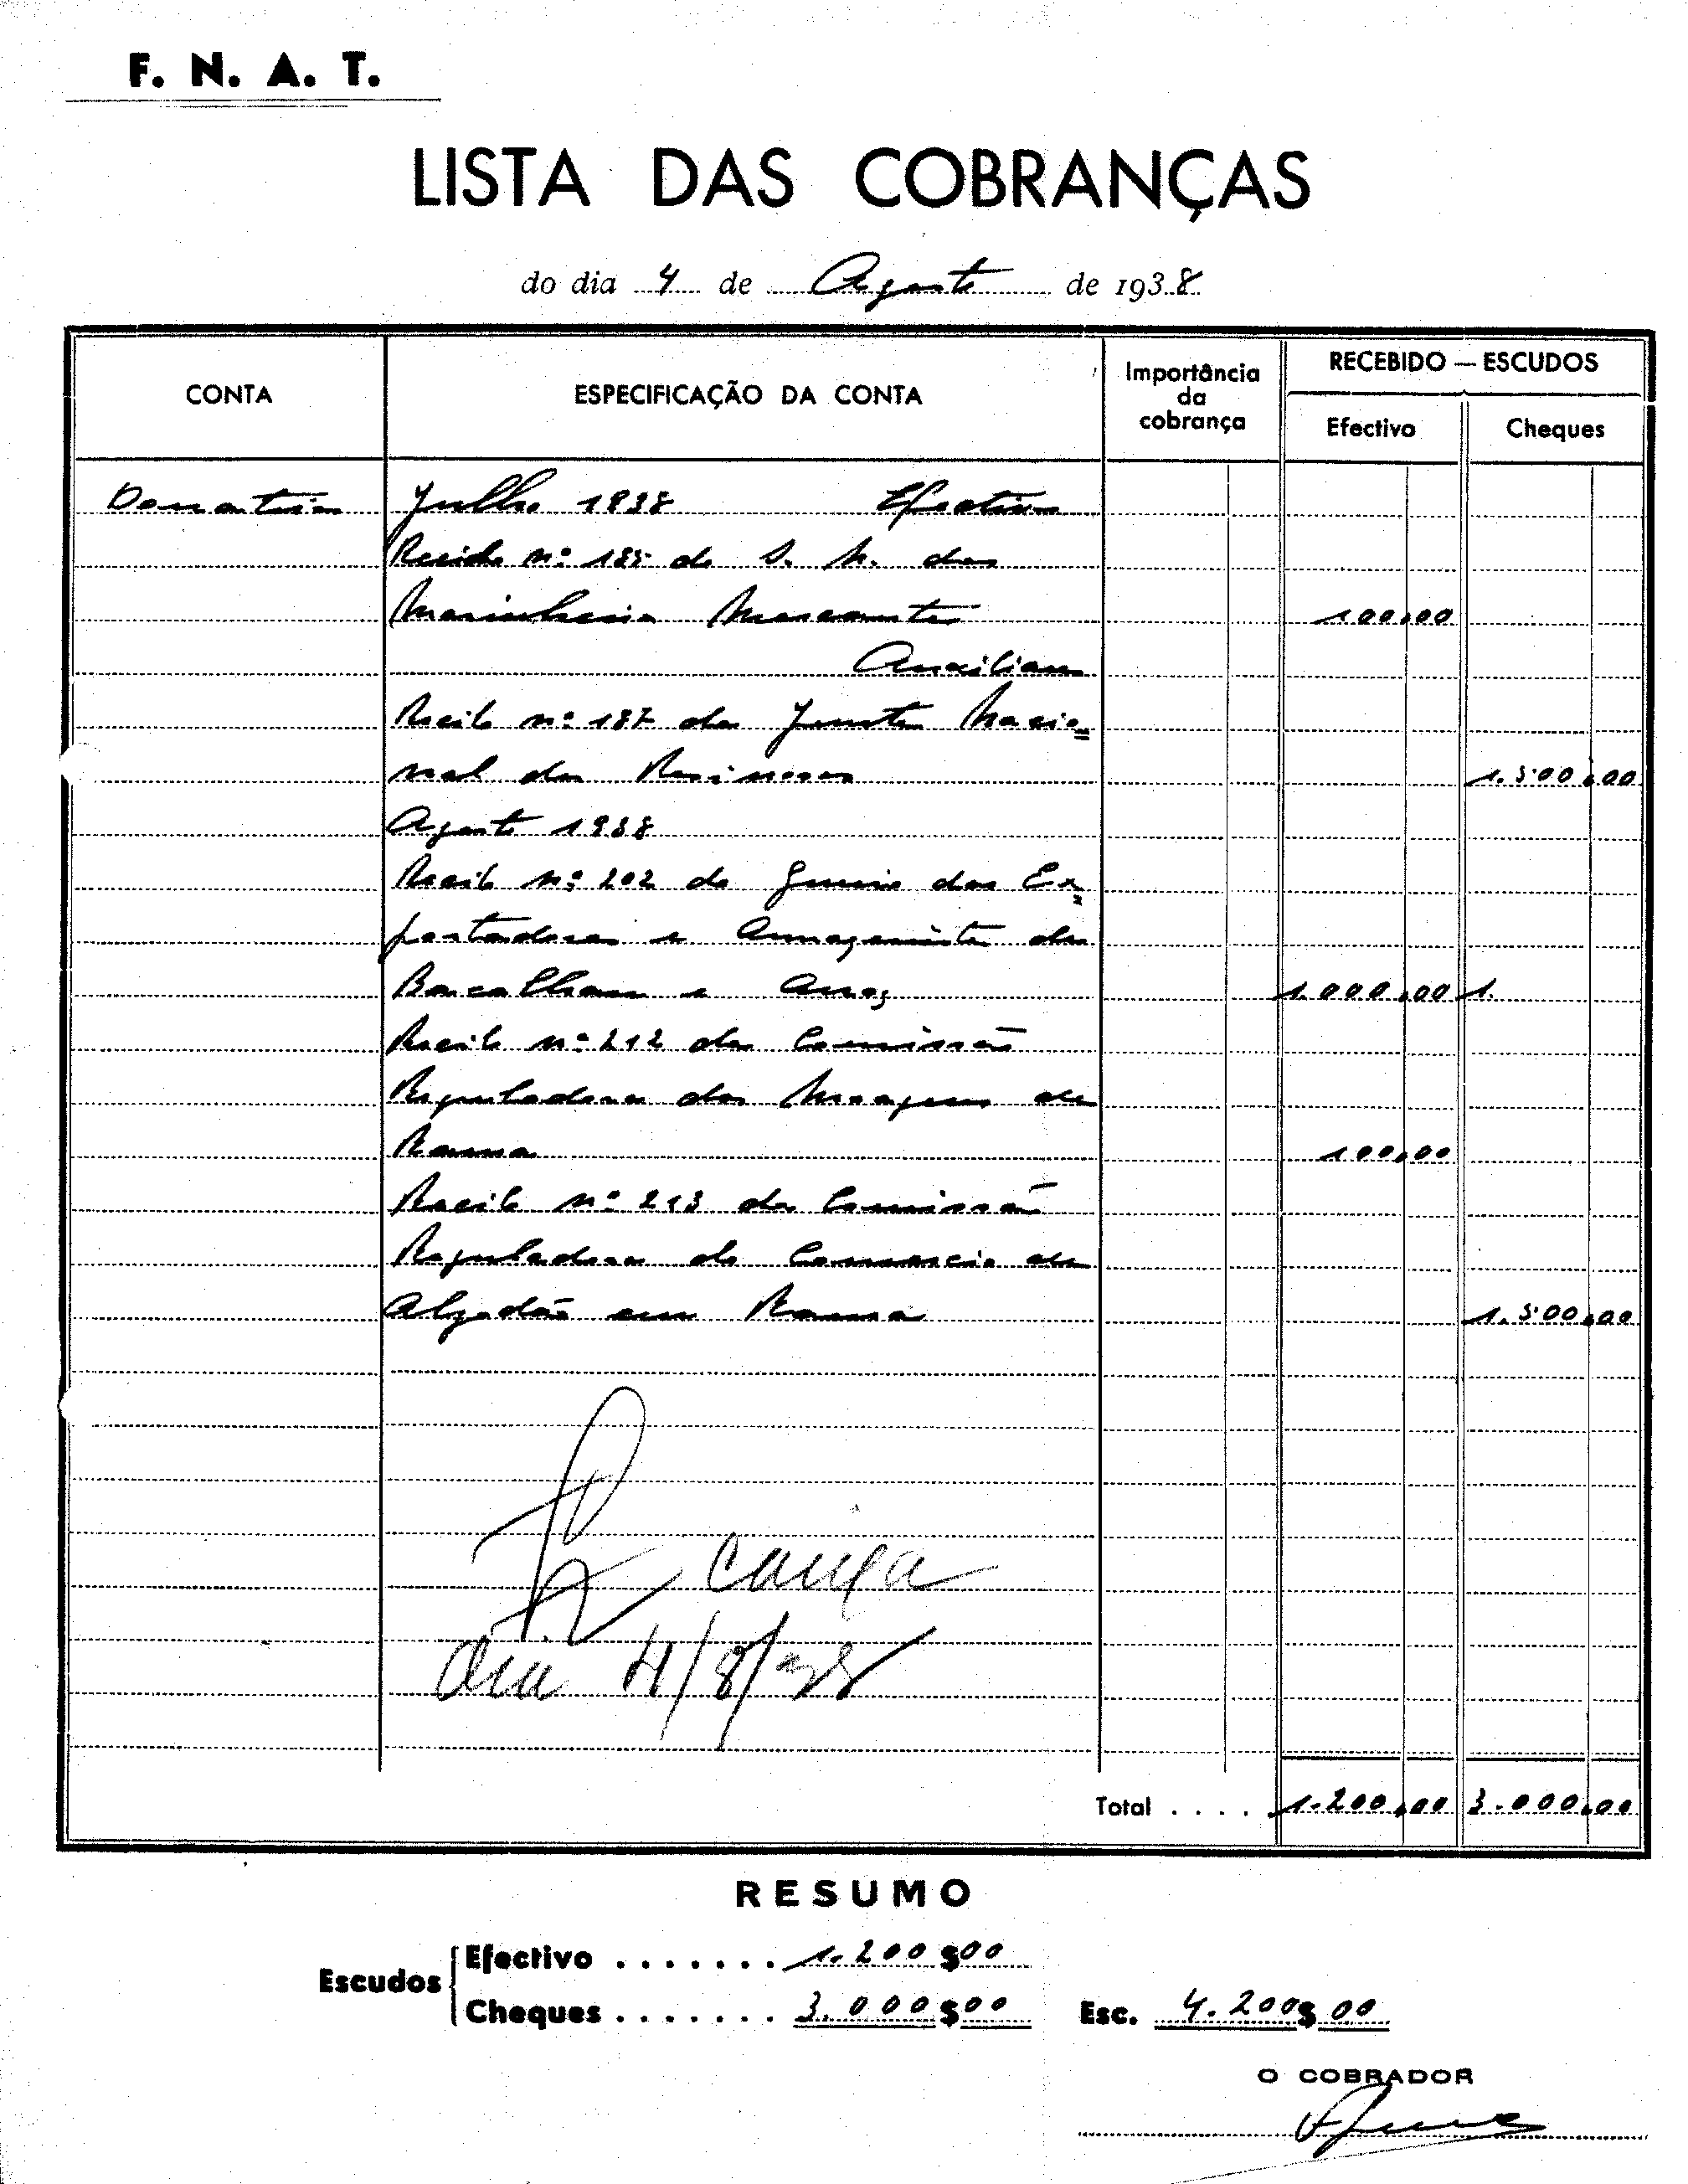 F. N. A. T.
LISTA DAS COBRANÇAS
do dia 4 de Agosto de 1938
CONTA
ESPECIFICAÇÃO DA CONTA
Importância
da
cobrança
RECEBIDO — ESCUDOS
Efectivo
Cheques
Donativos Julho 1938 Efectivos
Recibo nº 185 do S. N. dos
Marinheiros Mercante 100,00
Auxiliares
Recibo nº 187 da Junta Nacio=
nal dos Resinosos 1.500,00
Agosto 1938
Recibo nº 202 do Gremio dos Ex=
portadores e Armazenistas de
Bacalhau e Arroz 1.000,00 1.
Recibo nº 212 da Comissão
Reguladora das Moagens de
Rama 100,00
Recibo nº 213 da Comissão
Reguladora do Comercio de
Algodão em Rama 1.500,00
caixa
dia 4/8/38
Total . . . . 1.200,00 3.000,00
RESUMO
Escudos
Efectivo . . . . . . . 1.200$00
Cheques . . . . . . . 3.000$00 Esc. 4.200$00
O COBRADOR